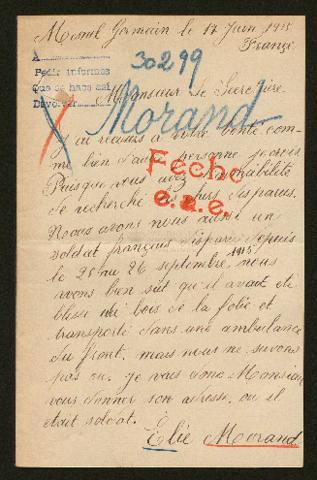 Mesnil Germain le 17 Juin 1915
France
A
Pedir informes
Que se hace así
Devolver
30299
Monsieur le Secrétaire
Morand
J'ai recours à votre bonté com-
me bien d'autre personne je crois
Fecho
Puisque vous avez l'amabilité
e.a.e.
de recherché des disparus.
Nous avons nous aussi un
soldat français disparu depuis
le 25 au 26 septembre 1915, nous
avons bien sut que il avait été
blessé au bois de la folie et
transporté dans une ambulance
du front, mais nous ne savons
pas ou. je vais donc Monsieur
vous donner son adresse, ou il
était soldat.
Elie Morand